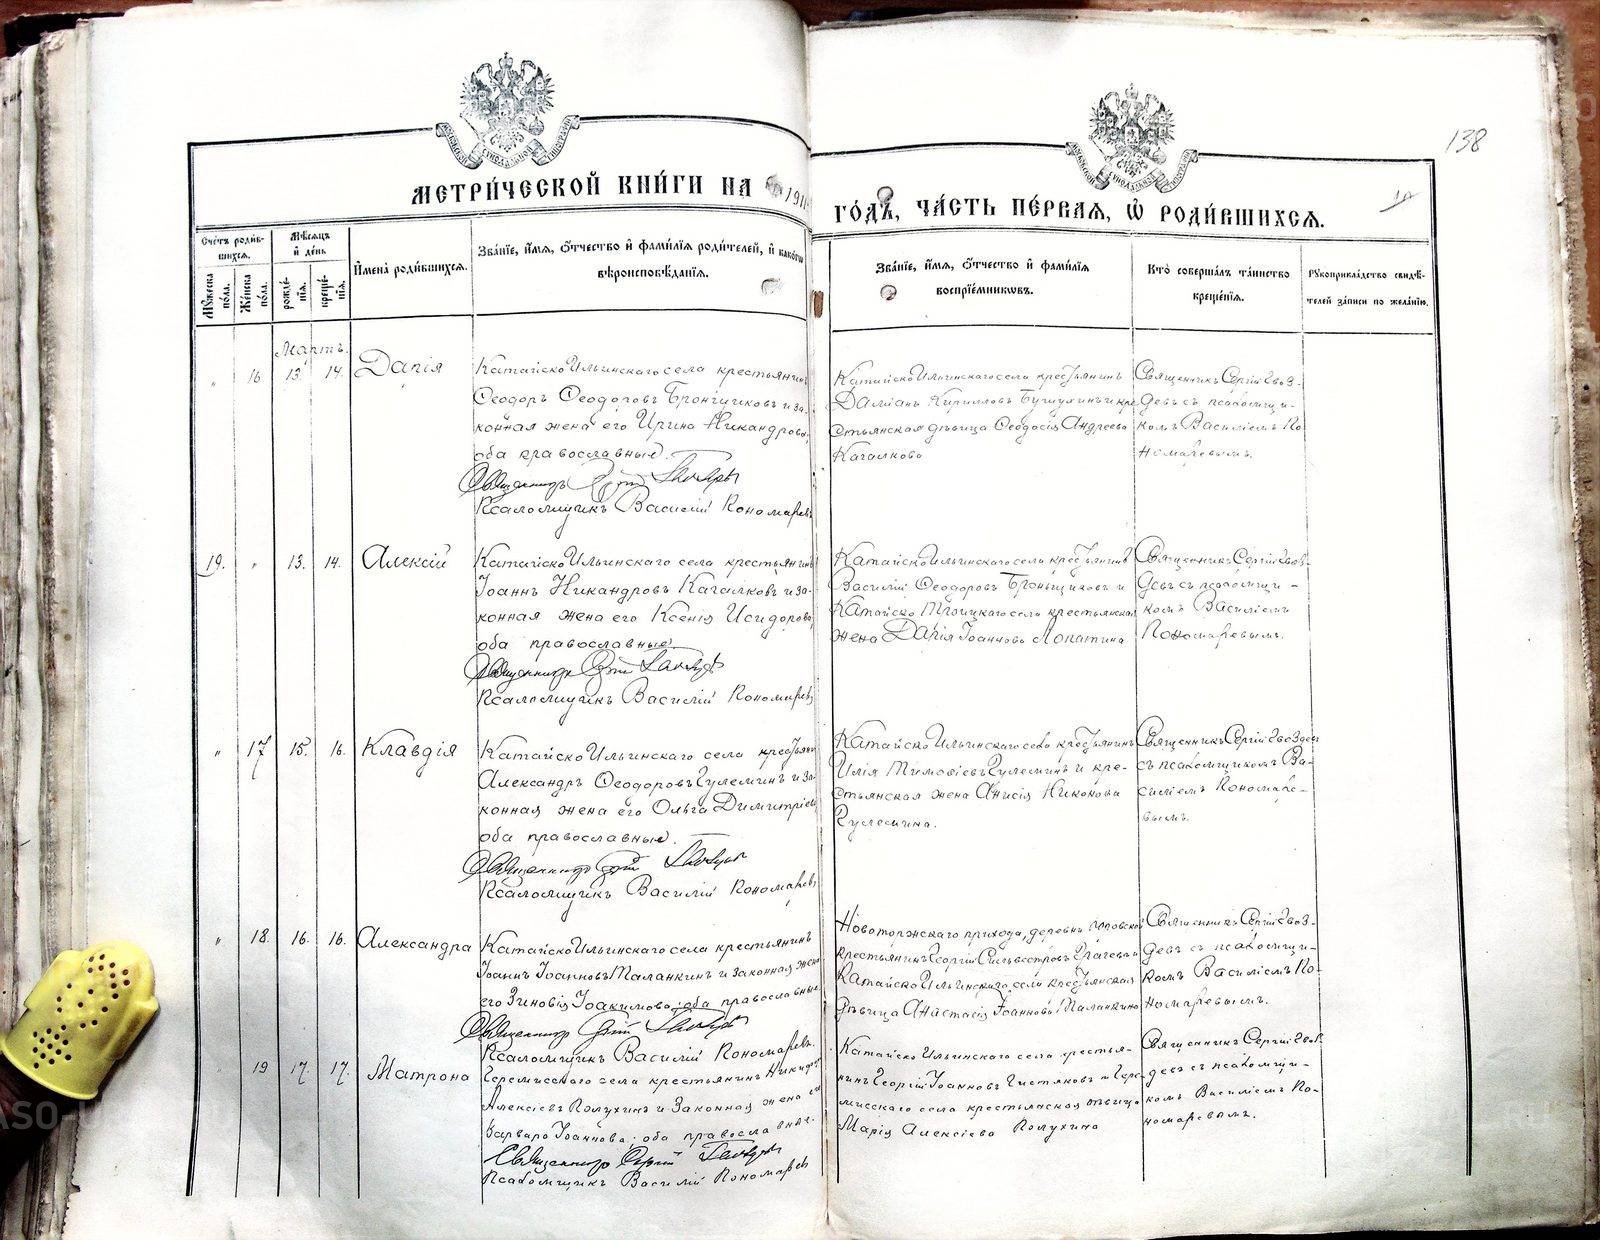 138
МЕТРИ́ЧЕСКОЙ КНИ́ГИ НА 191
ГО́ДЪ, ЧА́СТЬ ПЕ́РВАЯ, Ѡ҆ РОДИ́ВШИХСЯ.
Сче́тъ роди́в-
шихся.
Мѣ́сяцъ
и҆ де́нь
И҆мена̀ роди́вшихся.
Зва́нїе, и҆́мя, ѻ҆́тчество и҆ фами́лїя роди́телей, и҆ како́гѡ
вѣ́роисповѣ́данїя.
Зва́нїе, и҆́мя, ѻ҆́тчество и҆ фами́лїя
воспрїе́мникѡвъ.
Кто̀ соверша́лъ та́инство
креще́нїя.
Рꙋкоприкла́дство свидѣ́-
телей за́писи по жела́нїю.
Мꙋ́жеска
по́ла.
Же́нска
по́ла.
рожде́-
нїя.
креще́-
нїя.
Мартъ.
" 16 13. 14. Дарія
Катайско Ильинскаго села крестьянин
Ѳеодоръ Ѳеодоровъ Бронщиковъ и за-
конная жена его Ирина Никандрова,
оба православные.
Священникъ Сергій Гвоздевъ
Псаломщикъ Василій Пономаревъ
Катайско Ильинскаго села крестьянинъ
Даміанъ Кирилловъ Бушуминъ и кре
стьянская дѣвица Ѳеодосія Андреева
Качалкова
Священникъ Сергій Гвоз-
девъ съ псаломщи-
комъ Василіемъ По
номаревымъ.
19. " 13. 14. Алексій
Катайско Ильинскаго села крестьянинъ
Іоаннъ Никандровъ Качалковъ и за-
конная жена его Ксенія Исидорова,
оба православные.
Священникъ Сергій Гвоздевъ
Псаломщикъ Василій Пономаревъ
Катайско Ильинскаго села крестьянинъ
Василій Ѳеодоровъ Бронщиковъ и
Катайско Троицкаго села крестьянская
жена Дарія Іоаннова Лопатина
Священникъ Сергій Гвоз-
девъ съ псаломщи-
комъ Василіемъ
Пономаревымъ.
" 17 15. 16. Клавдія
Катайско Ильинскаго села крестьяни
Александръ Ѳеодоровъ Гулеминъ и за-
конная жена его Ольга Димитріева
оба православные.
Священникъ Сергій Гвоздевъ
Псаломщикъ Василій Пономаревъ
Катайско Ильинскаго села крестьянинъ
Илія Тимоѳіевъ Гулеминъ и кре-
стьянская жена Анисія Никонова
Гулемина.
Священникъ Сергій Гвоздевъ
съ псаломщикомъ Ва-
силіемъ Пономаре-
вымъ.
" 18. 16. 16. Александра
Катайско Ильинскаго села крестьянинъ
Іоаннъ Іоанновъ Маланкинъ и законная жена
его Зиновія Іоакимова, оба православные
Священникъ Сергій Гвоздевъ
Псаломщикъ Василій Пономаревъ.
Новоторжскаго прихода, деревни
крестьянинъ Георгій Сильвестровъ Грачевъ и
Катайско Ильинскаго села крестьянская
дѣвица Анастасія Іоаннова Маланкина
Священникъ Сергій Гвоз-
девъ съ псаломщи-
комъ Василіемъ По-
номаревымъ.
19 17. 17. Матрона
Черемисскаго села крестьянинъ Никидоръ
Алексіевъ Полухинъ и законная жена его
Варвара Іоаннова, оба православные.
Священникъ Сергій Гвоздевъ
Псаломщикъ Василій Пономаревъ
Катайско Ильинскаго села крестья-
нинъ Георгій Іоанновъ Чистяковъ и Чере-
мисскаго села крестьянская дѣвица
Марія Алексіева Полухина
Священникъ Сергій Гвоз-
девъ съ псаломщи-
комъ Василіемъ По-
номаревымъ.